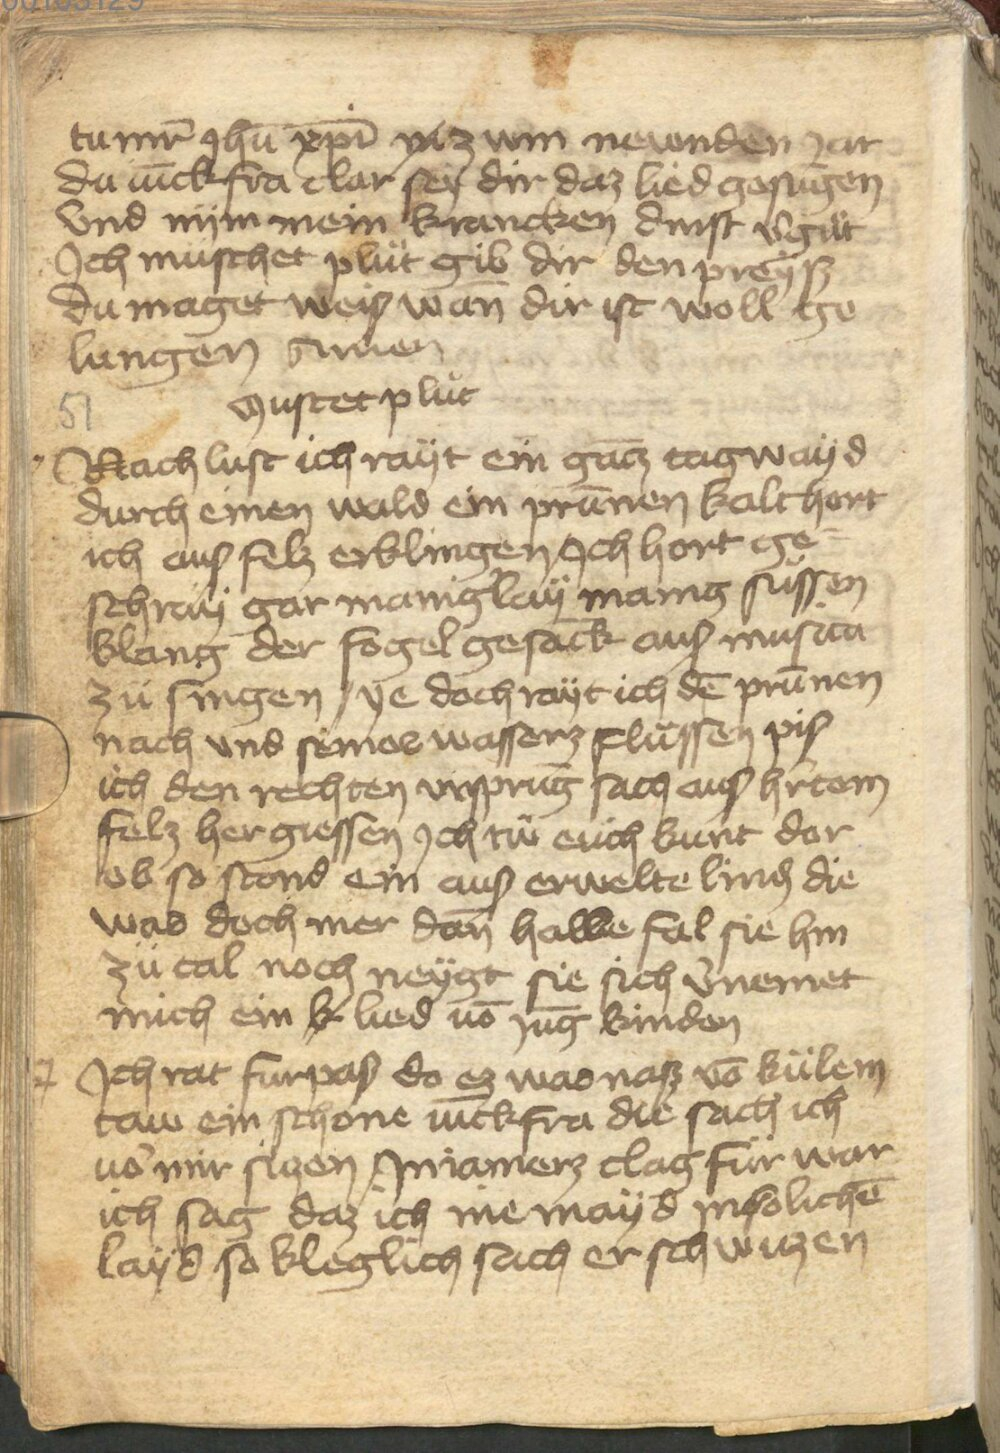 00105129
tumr̄ ihū xpī piz wm newnden jar
du iūckfra clar sey dir daz lied gesūgen
Vnd nym mein krancken dinst v̄gūt
Ich muschet plüt gib dir den preyß
du maget weiß wan̄ dir ist woll ge
lungen Amen
51 Mustet plüt
Nach lust ich raÿt ein gācz tagwayd
durch einen wald ein prūnen kalt hort
ich auß felz erklingen Ich hort ge-
schraÿ gar manig'laÿ manig süssen
klang der fogel gesāck auß musica
zü singen / ye doch raÿt ich dē prūnen
nach vnd seines wasserz flüssen piß
ich den rechten vrsprūg sach auß h'tem
felz her giessen Ich tw̄ euch kunt dor
ob so stond ein auß erwelte lind die
was doch mer dan̄ halbe fal sie hin
zü tal noch neÿgt sie sich v̄nemet
mich ein k lied vō jūg kinden
Ich rat furpaß do ez was naß vō külem
taw ein schone iūckfra die sach ich
vo' mir siczen In iamerz clag für war
ich sag daz ich nie mayd in solichē
layd so kleglich sach er schwiczen